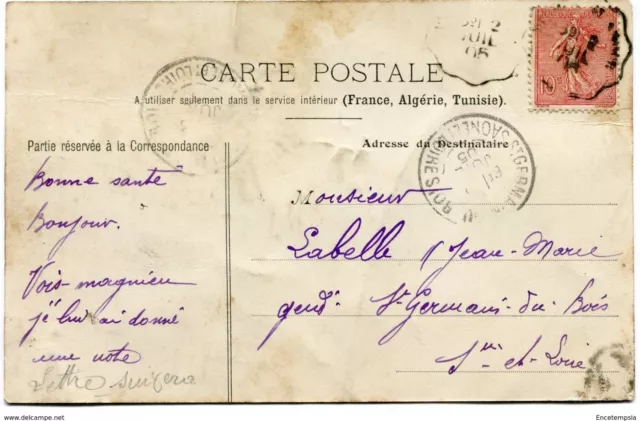 CARTE POSTALE
A utiliser seulement dans le service intérieur (France, Algérie, Tunisie).
Partie réservée à la Correspondance
Adresse du Destinataire
Bonne santé
Bonjour.
Vois-magnien
j'é lui ai donné
une note
Lettre suivera
Monsieur
Labelle Jean-Marie
gend: St Germain-du-Bois
et-Loire
2
JUIL
05
ST GERMAIN DU BOIS
SAONE-ET-LOIRE
05
10
© www.delcampe.net
Encetempsla